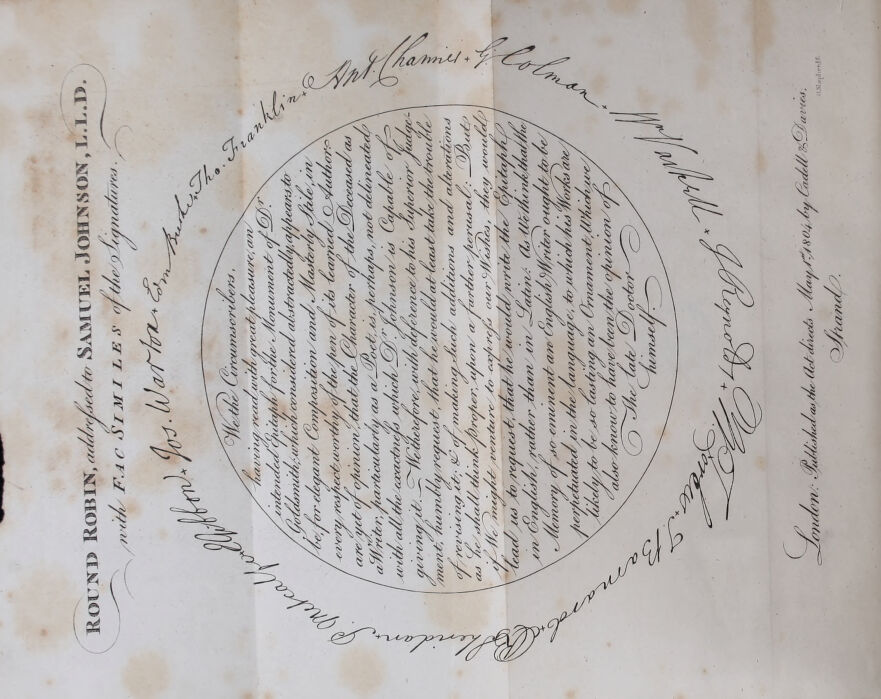 ROUND ROBIN, addressed to SAMUEL JOHNSON, L.L.D.
with FAC SIMILES of the Signatures.
We the Circumscribers,
having read with great pleasure, an
intended Epitaph for the Monument of Dr.
Goldsmith, which considered abstractedly, appears to
be, for elegant Composition and Masterly Stile, in
every respect worthy of the pen of its learned Author,
are yet of opinion, that the Character of the Deceased as
a Writer, particularly as a Poet, is, perhaps, not delineated
with all the exactness which Dr. Johnson is Capable of
giving it. We therefore, with deference to his Superior Judge-
ment, humbly request, that he would at least take the trouble
of revising it; & of making such additions and alterations
as he shall think proper, upon a farther perusal: But
if We might venture to express our Wishes, they would
lead us to request, that he would write the Epitaph
in English, rather than in Latin: As We think that the
Memory of so eminent an English Writer ought to be
perpetuated in the language, to which his Works are
likely to be so lasting an Ornament, Which we
also know to have been the opinion of
The late Doctor
himself.
Edw Gibbon +
Jos. Warton +
Edm Burke +
Tho. Franklin +
Ant. Chamier +
G Colman +
Wm Vaſhell +
J Reynolds +
W Forbes +
T Barnard +
R B Sheridan +
P. Metcalf
London: Published as the Act directs May 1st, 1804, by Cadell & Davies,
Strand.